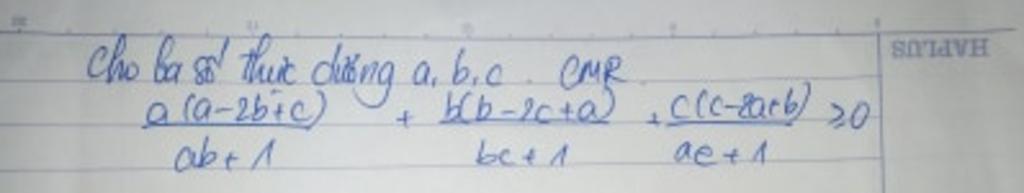 Cho ba số thực dương a, b, c. CMR
a(a-2b+c)/ab+1 + b(b-2c+a)/bc+1 + c(c-2a+b)/ac+1 ≥0
HAPLUS